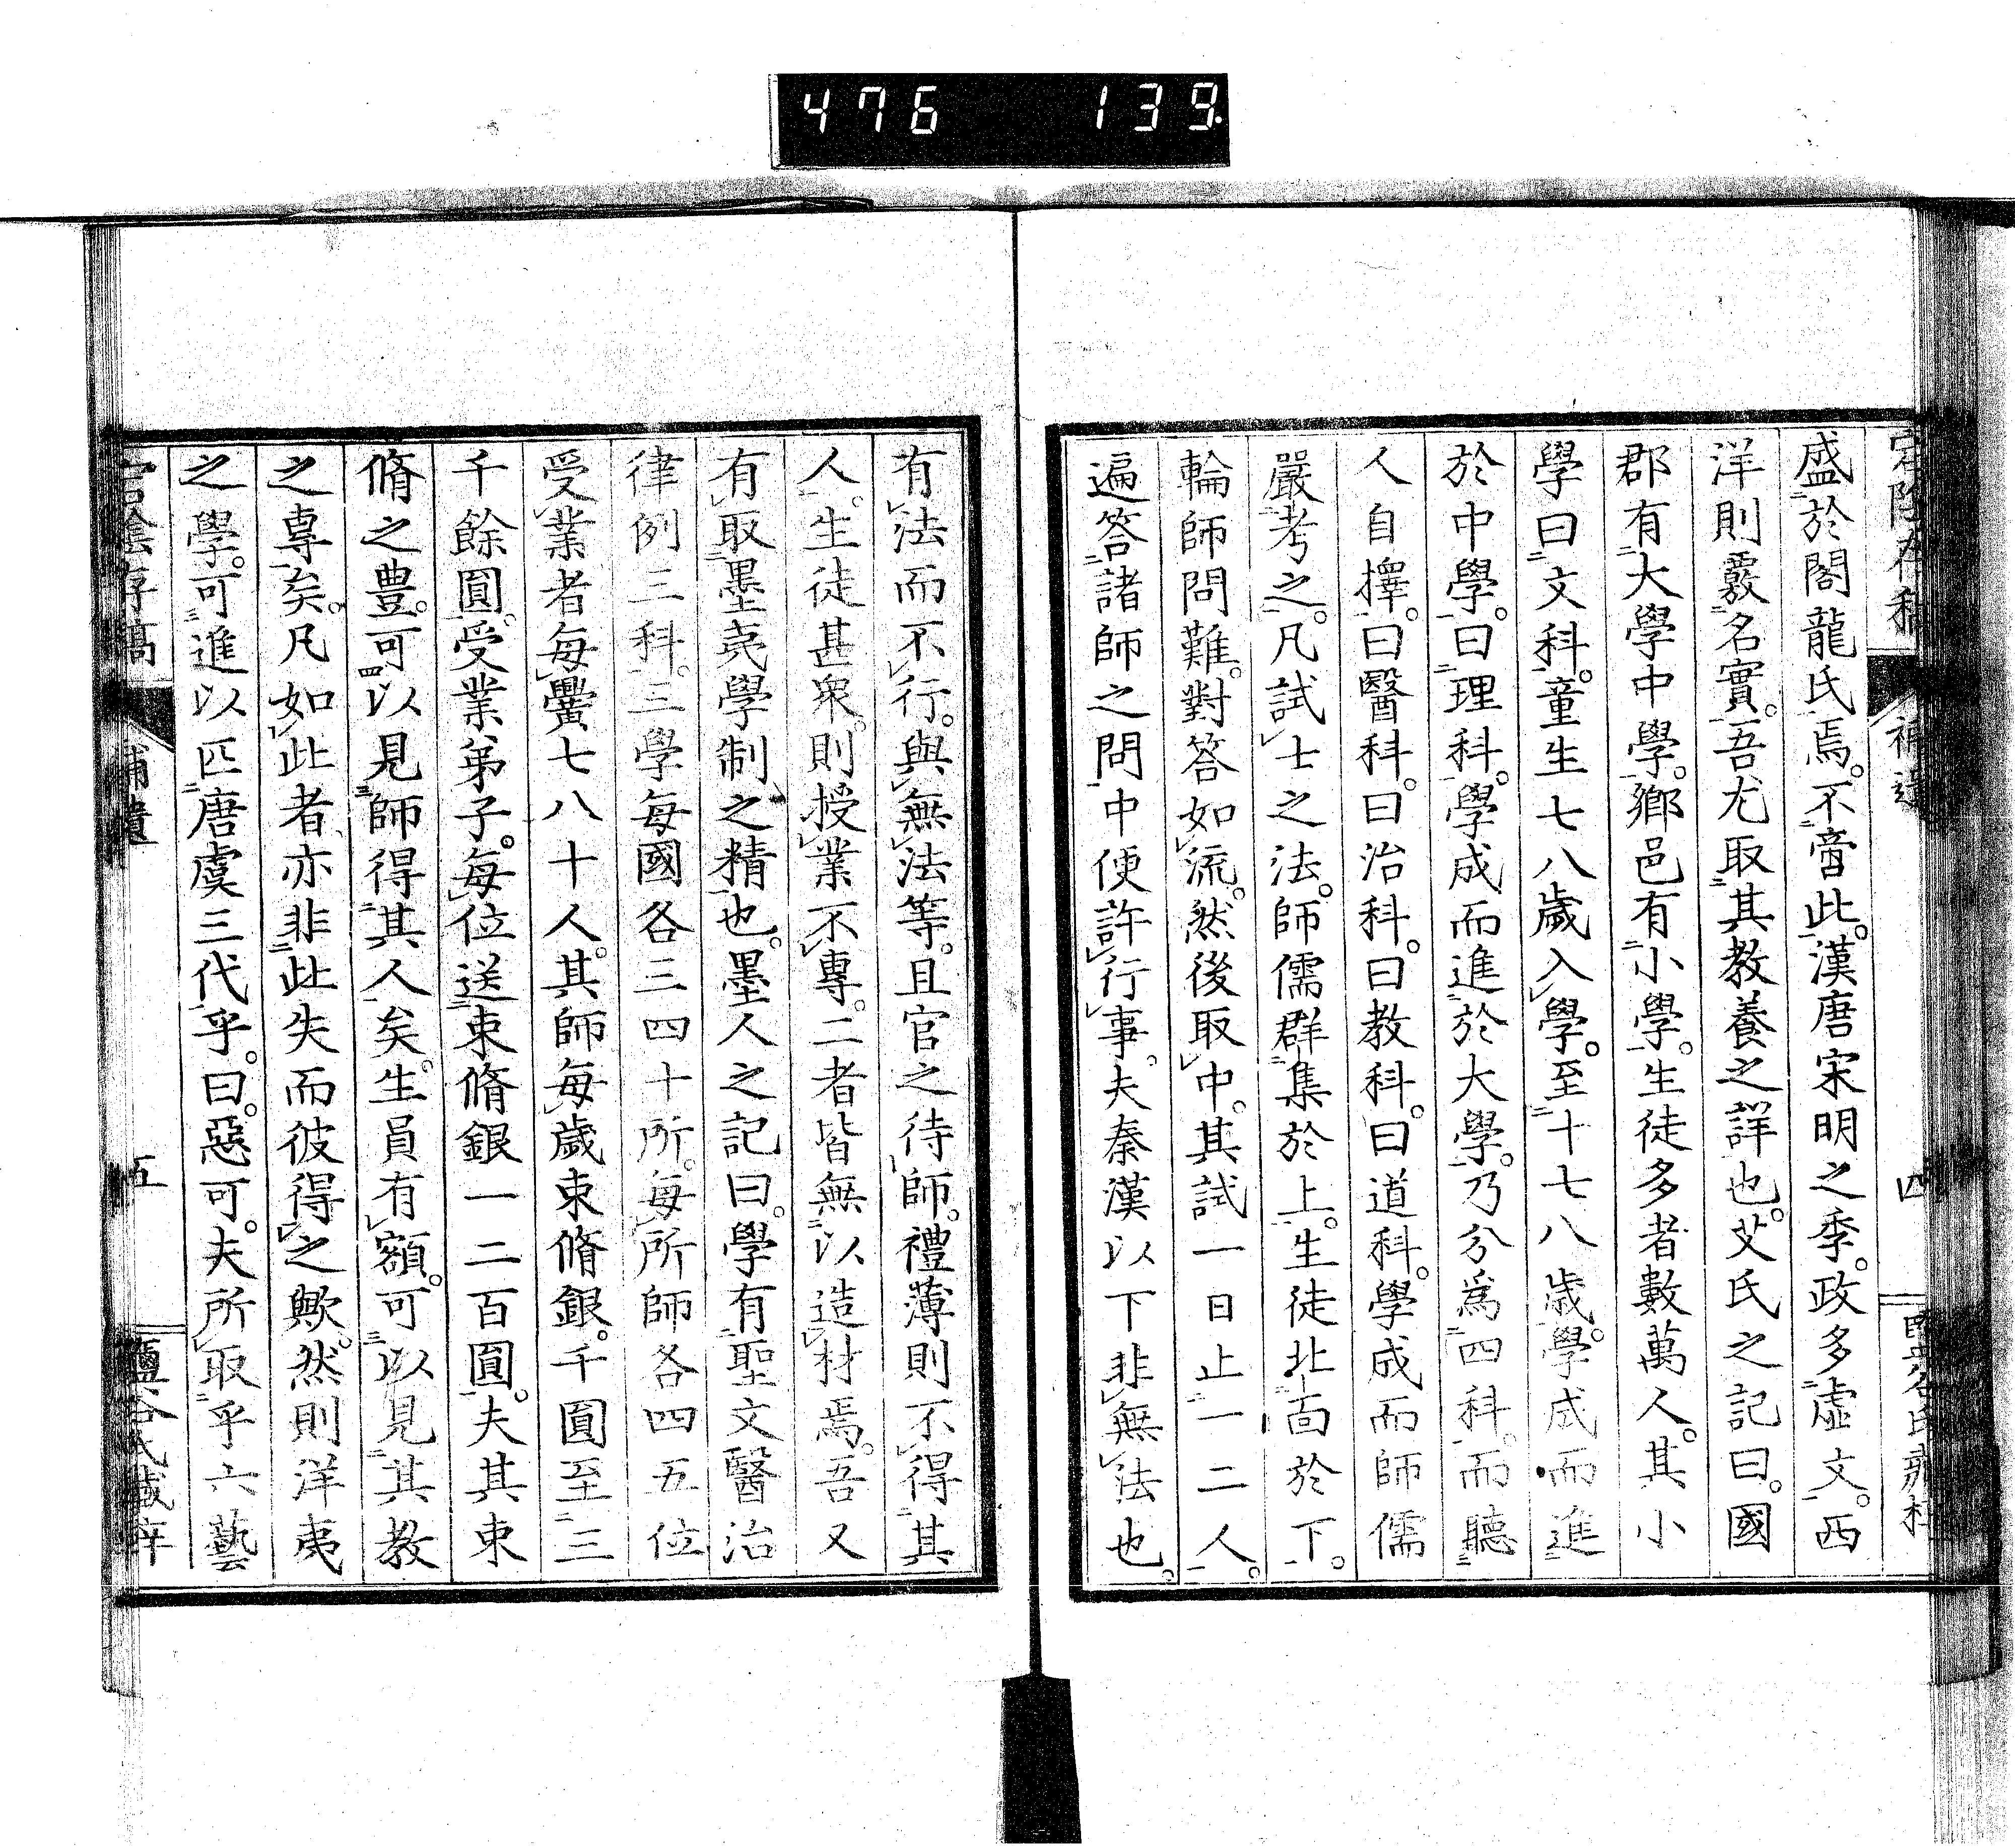 476 139
盛於閣龍氏焉。不啻此。漢唐宋明之季。政多虛文。西
洋則覈名實。吾尤取其教養之詳也。艾氏之記曰。國
郡有大學中學。鄉邑有小學。生徒多者數萬人。其小
學曰文科。童生七八歲入學。至十七八歲。學成而進
於中學。曰理科。學成而進於大學。乃分爲四科。而聽
人自擇。曰醫科。曰治科。曰教科。曰道科。學成而師儒
嚴考之。凡試士之法。師儒群集於上。生徒北面於下。
輪師問難。對答如流。然後取中。其試一日止一二人。
遍答諸師之問中便許行事。夫秦漢以下非無法也。
有法而不行。與無法等。且官之待師。禮薄則不得其
人。生徒甚衆。則授業不專。二者皆無以造材焉。吾又
有取墨夷學制之精也。墨人之記曰。學有聖文醫治
律例三科。三學每國各三四十所。每所師各四五位
受業者每黌七八十人。其師每歲束脩銀。千圓至三
千餘圓。受業弟子。每位送束脩銀一二百圓。夫其束
脩之豊。可以見師得其人矣。生員有額。可以見其教
之專矣。凡如此者亦非此失而彼得之歟。然則洋夷
之學。可進以匹唐虞三代乎。曰。惡可。夫所取乎六藝
宕陰存稿
補遺
四
五
鹽谷氏藏梓